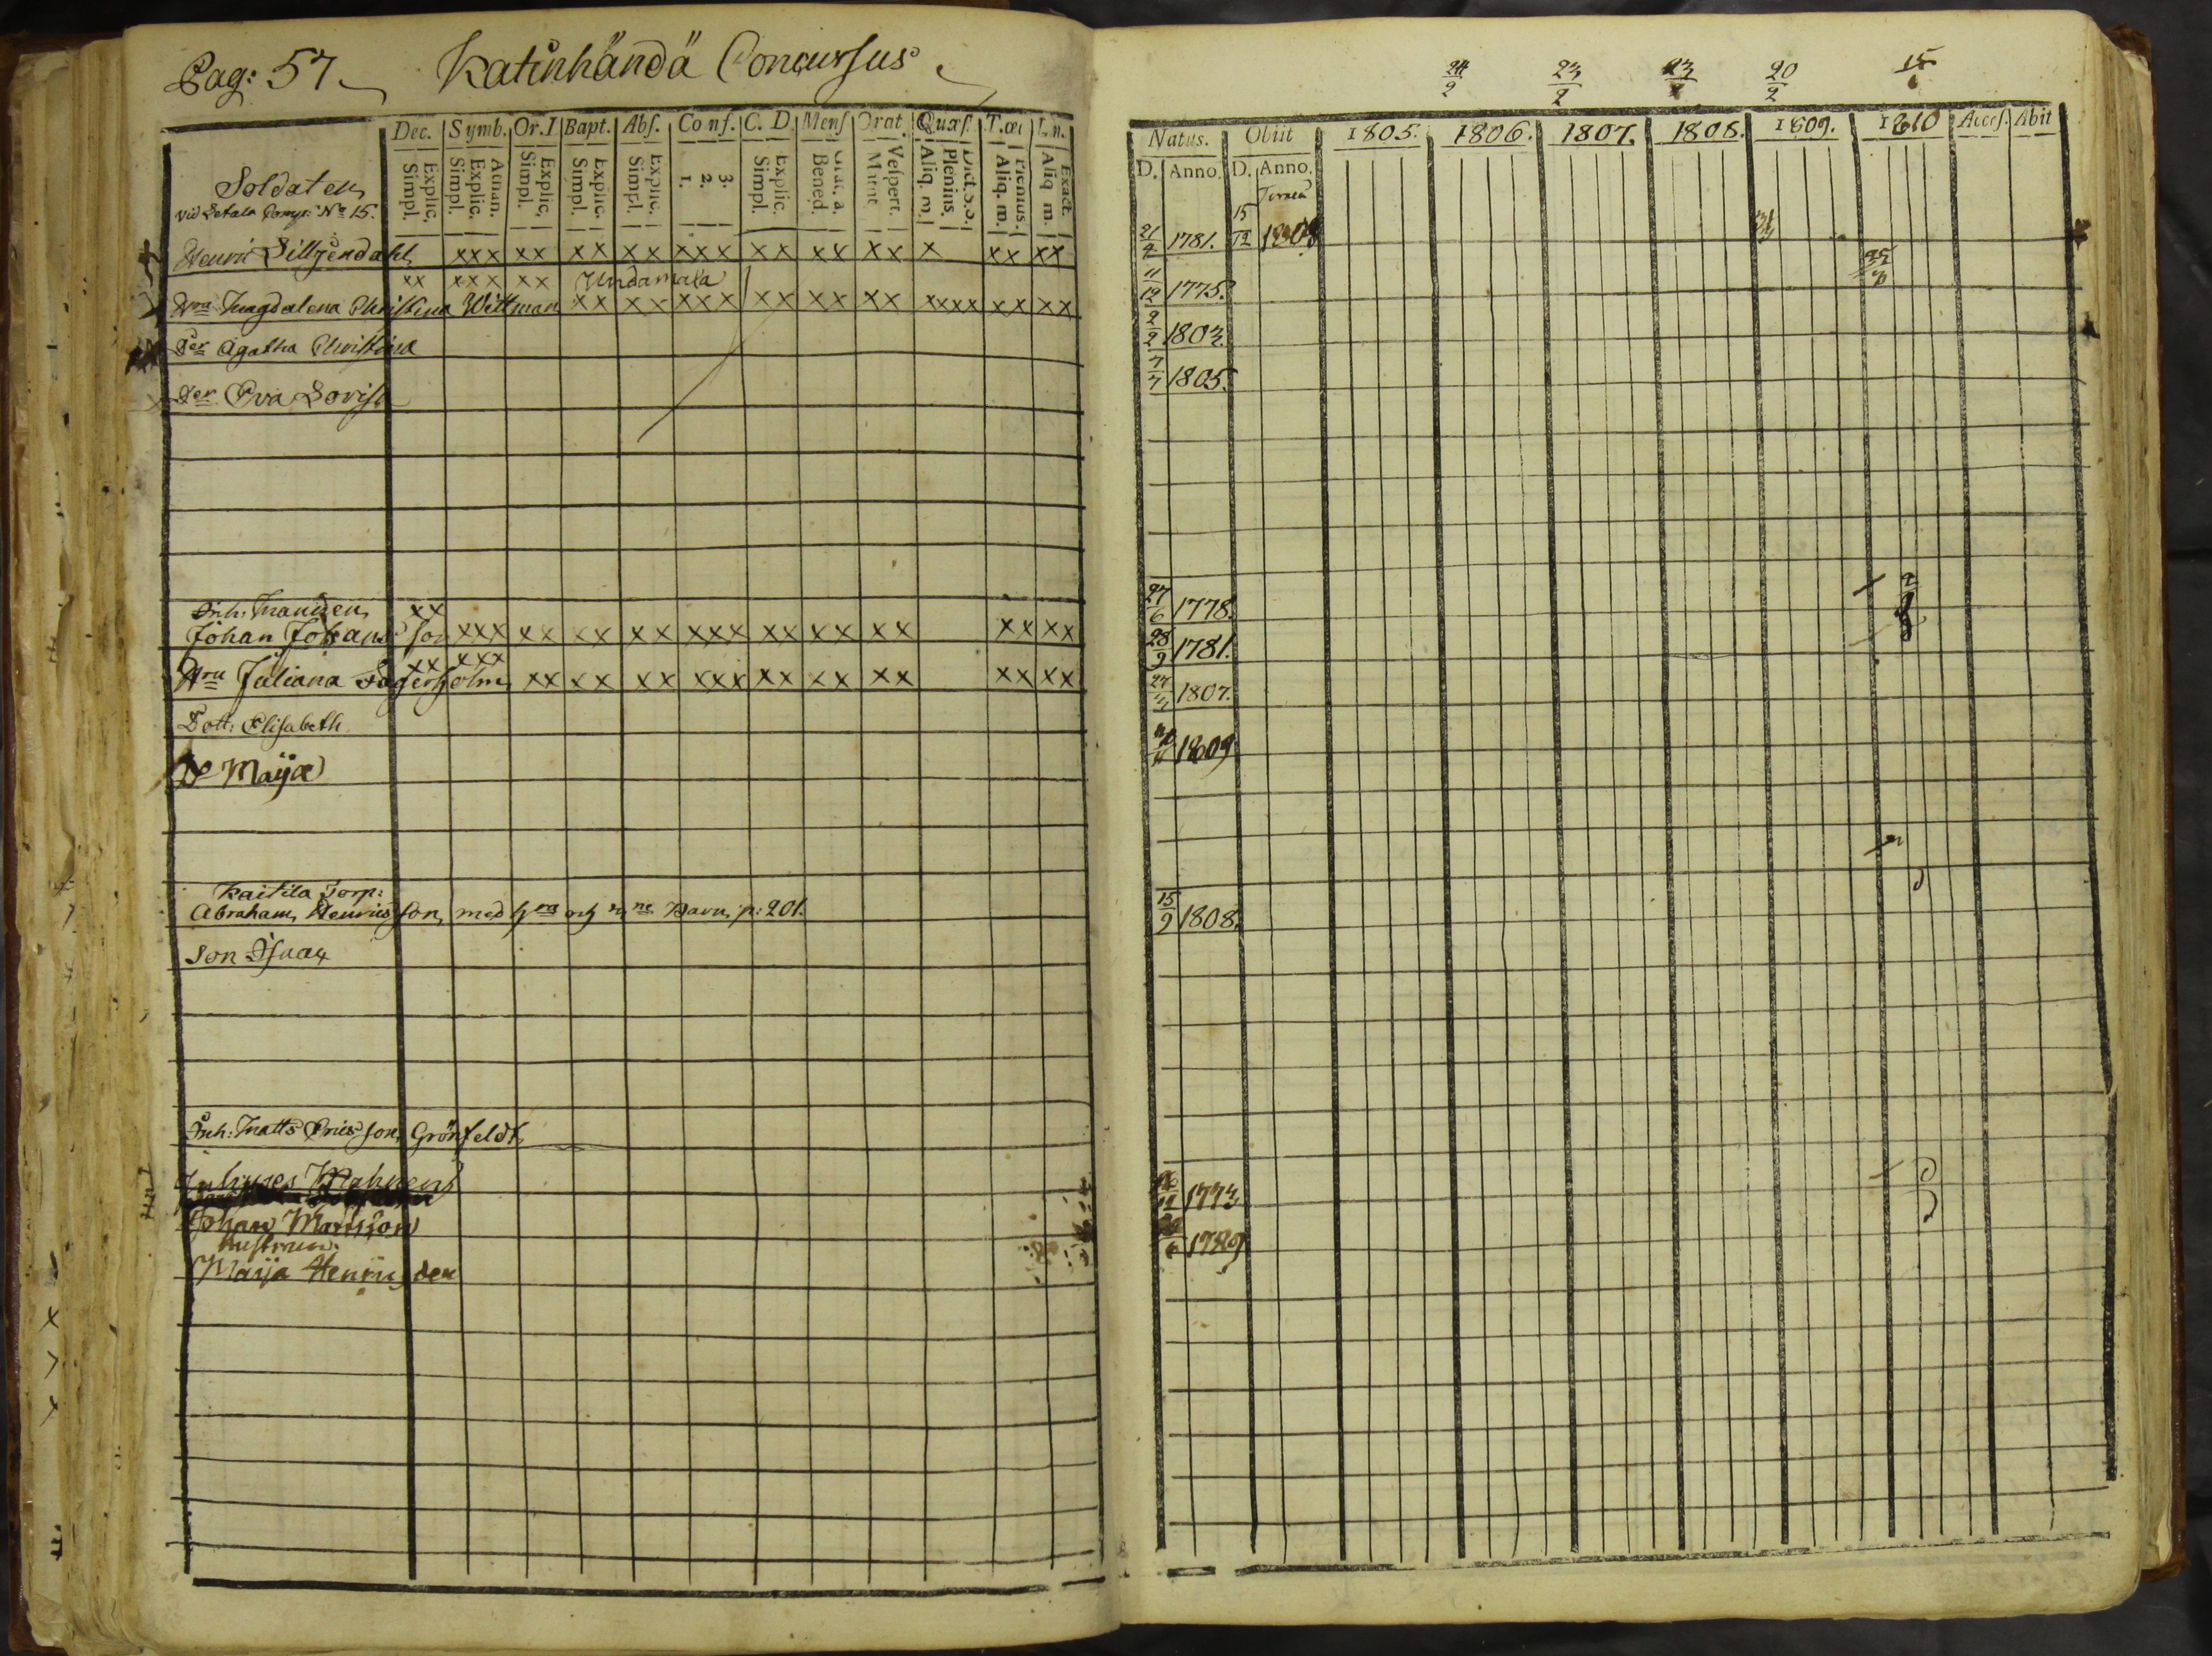 Pag: 57 Katinhändä Concursus
Dec. Symb. Or. I Bapt. Abſ. Conf. C. D. Menſ Orat. Quæſ.
Explic. Simpl. Athan. Explic. Simpl. Explic. Simpl. Explic. Simpl. Explic. Simpl. 3. 2. 1. Explic. Simpl. Bened. Veſpert. Plenius. Aliq. m. Plenius. Aliq. m. Exact. Aliq m.
Soldaten
vid Letala Comp: No 15.
Henric Lilljendahl xxx xx xx xx xxx xx xx xx x xx xx
xx xxx xx
Hru Magdalena Christina Wittman xx xx xxx xx xx xx xxxx xx xx
Dr Agatha Christina
Dr Eva Lovisa
Inh: Mannen xx
Johan Johansson xxx xx xx xx xxx xx xx xx xx xx
xx xxx
Hru Juliana Lagerholm xx xx xx xxx xx xx xx xx xx
Dott: Elisabeth
Do Maija
Kaitila Torp:
Abraham Henricsson med Barn p: 201.
Son Isaac
Inh: Matts Ericsson Grönfeldt
Johan Mattsson
hustrun
Maija Henricsdr
24/2 23/2 20/2 15
Natus. Obiit 1805. 1806. 1807. 1808. 1809. 1810 Acceſ. Abit
D. Anno. D. Anno.
Torneå
21/2 1781. 15/12 1808
11/12 1775.
2/2 1803.
7/7 1805.
27/6 1778.
28/9 1781.
1807.
1809
15/9 1808.
1773
1789